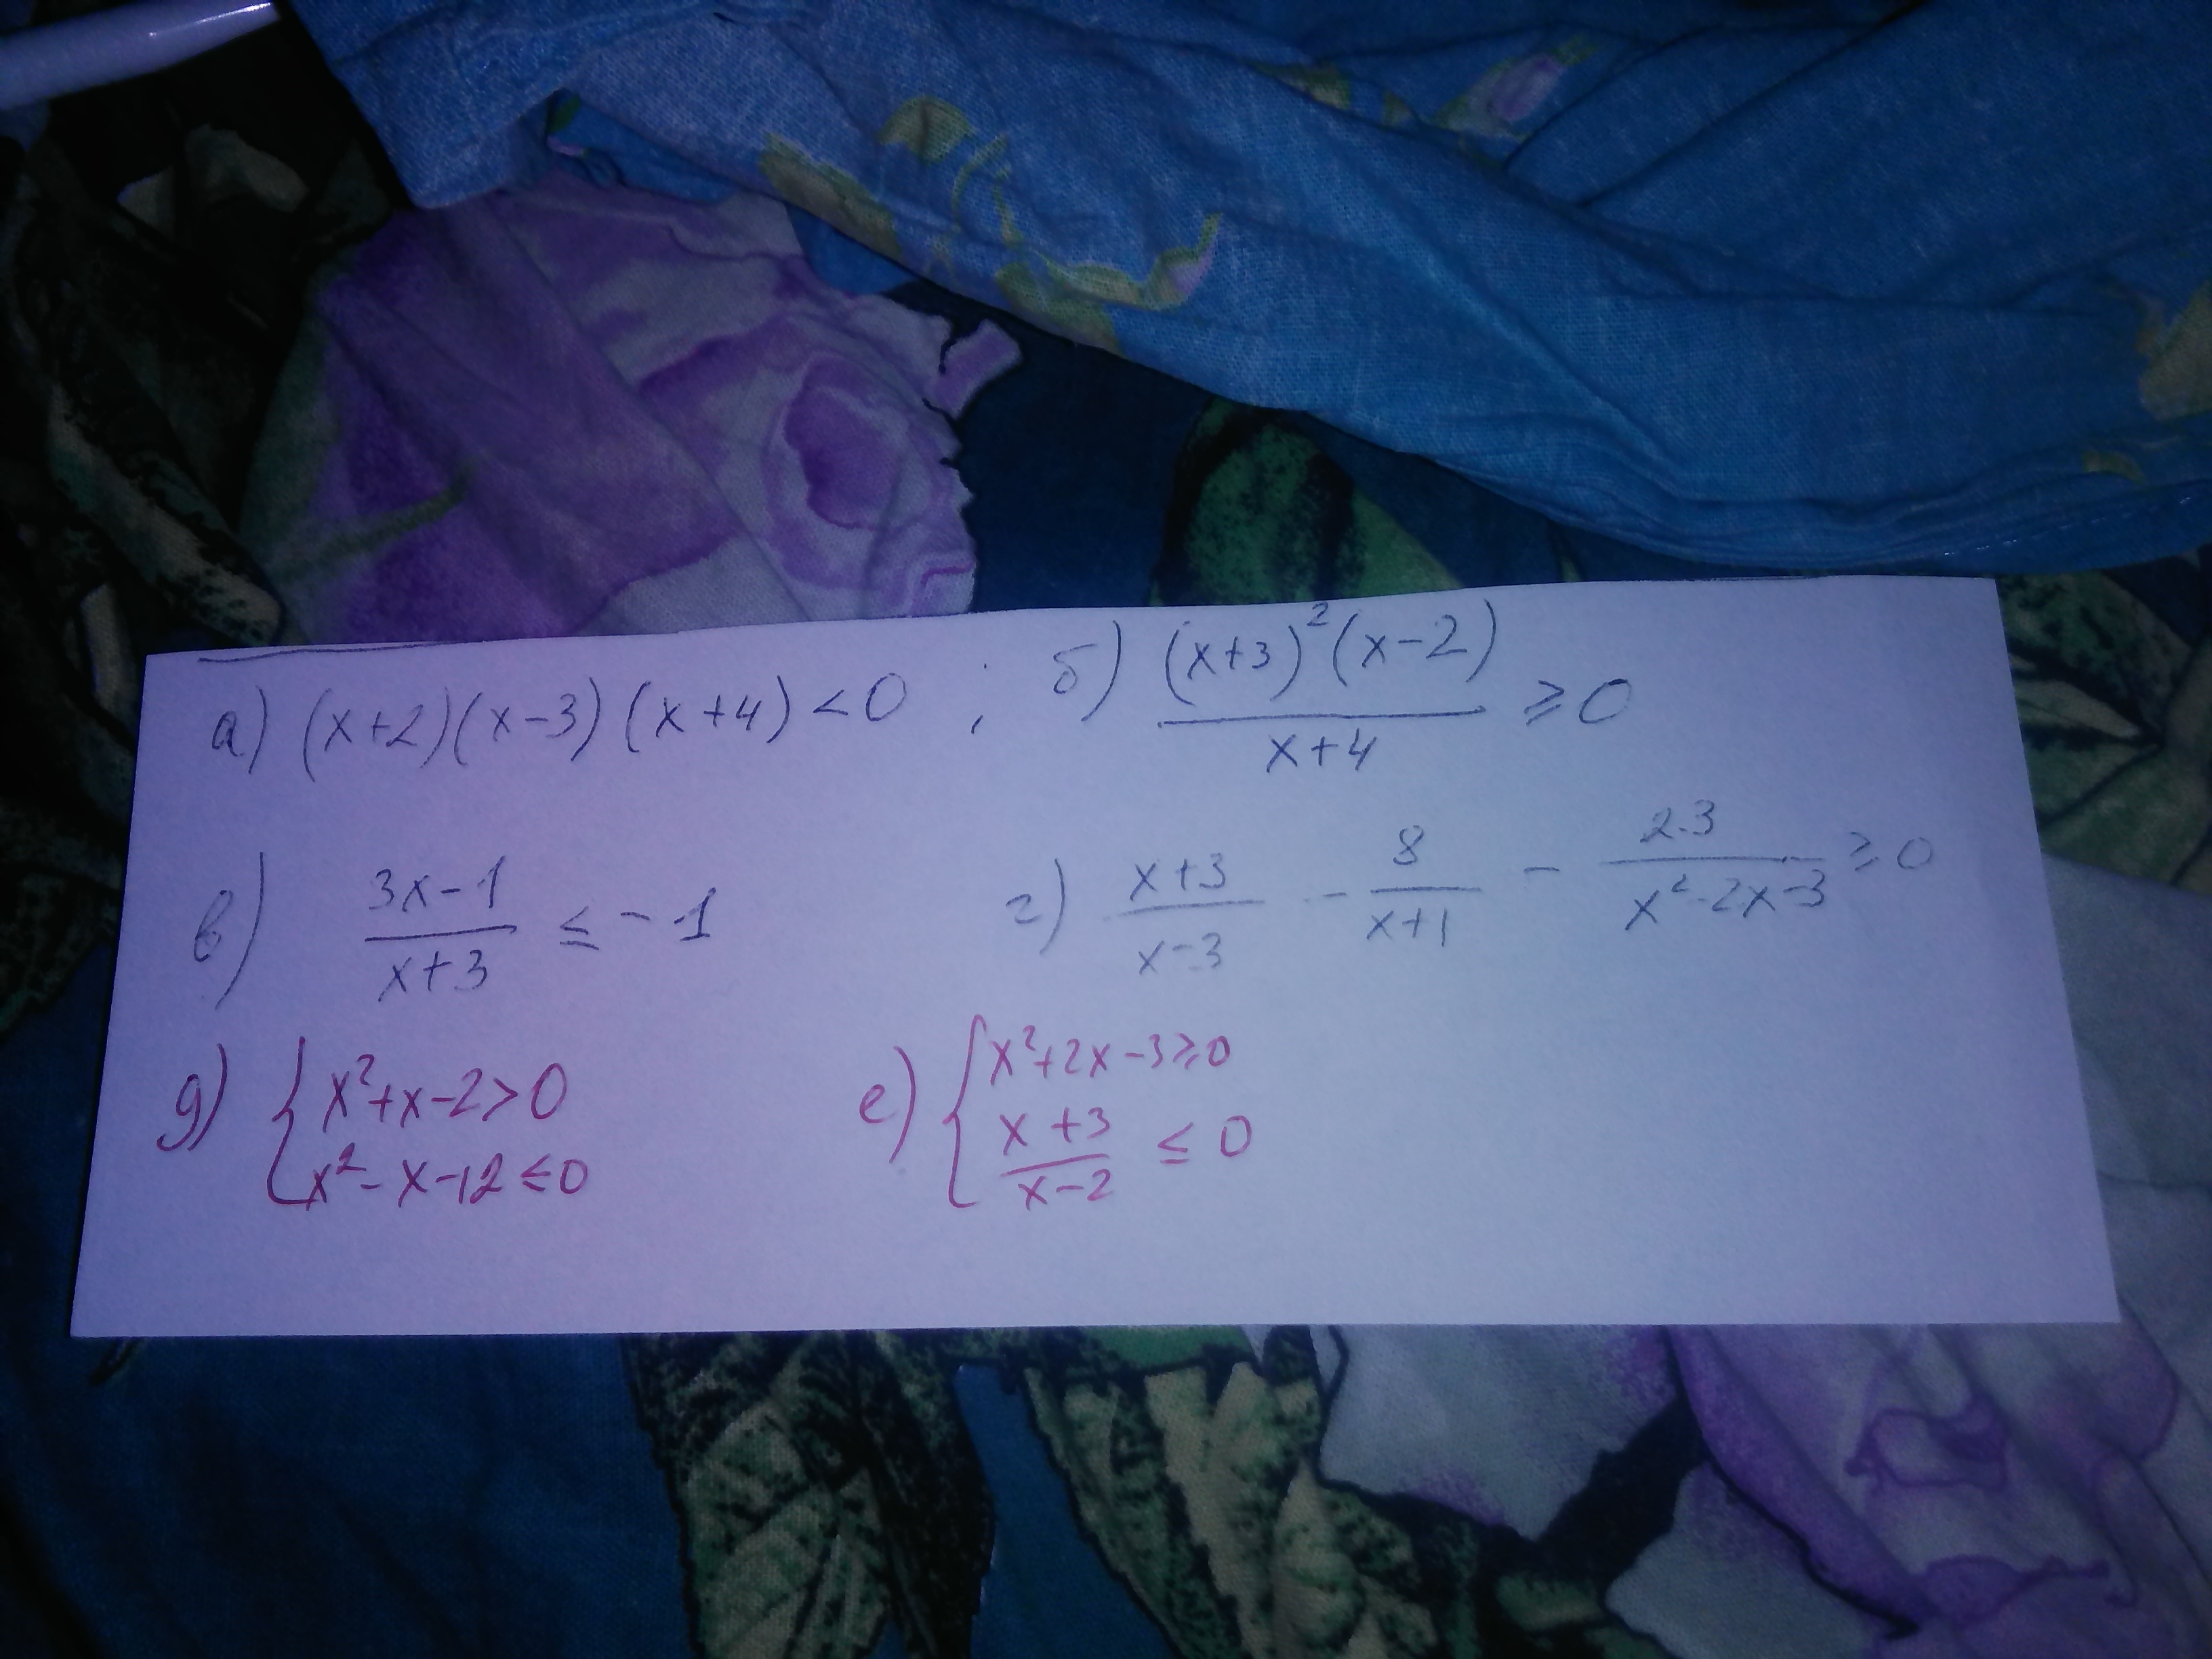 а) (x+2)(x-3)(x+4)<0 ; б) (x+3)²(x-2)/(x+4) ≥0
в) (3x-1)/(x+3) ≤ -1 г) (x+3)/(x-3) - 8/(x+1) - 23/(x²-2x-3) ≥0
д) { x²+x-2>0
x²-x-12≤0
е) { x²+2x-3≥0
(x+3)/(x-2) ≤ 0